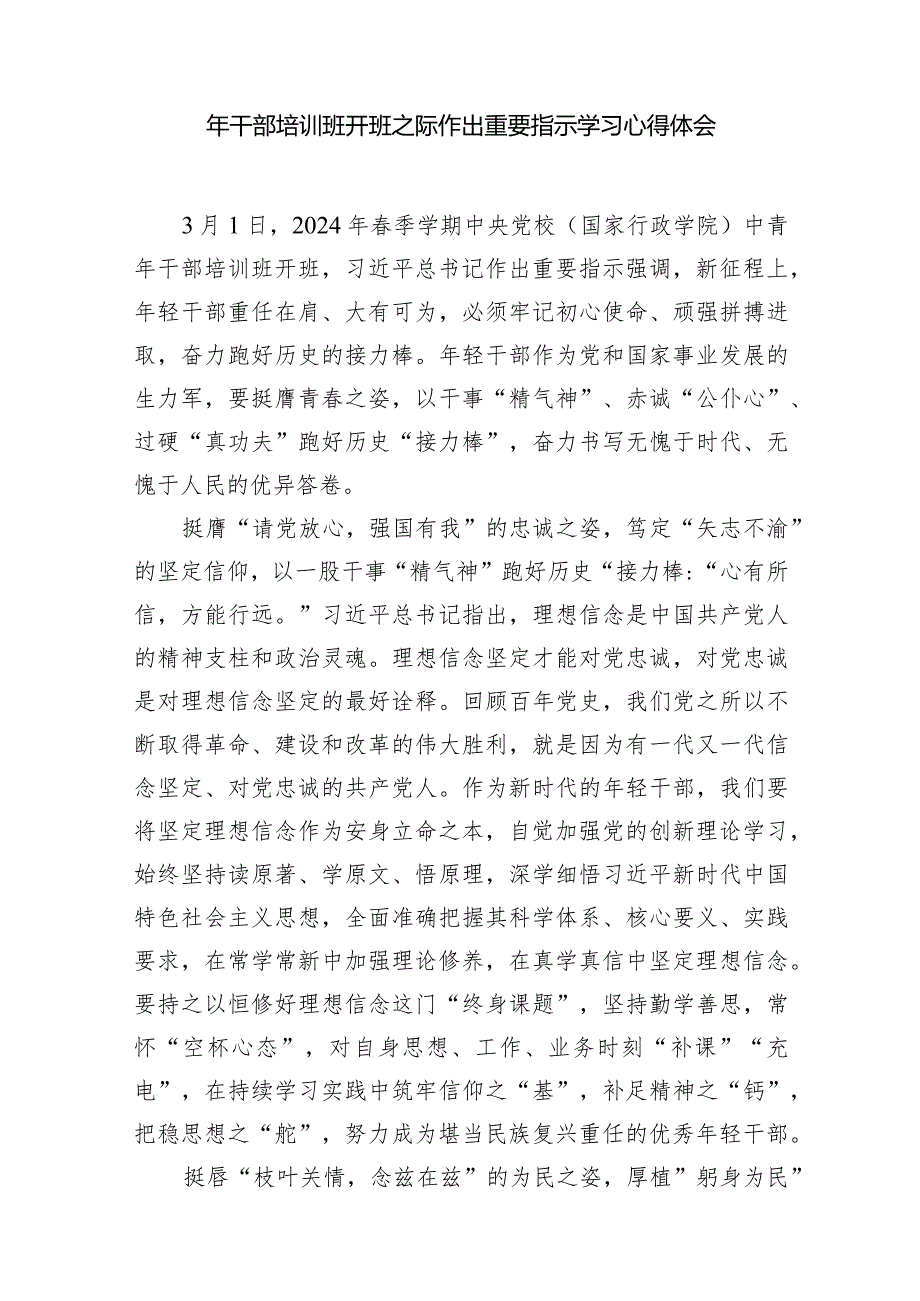 年干部培训班开班之际作出重要指示学习心得体会
3月1日，2024年春季学期中央党校（国家行政学院）中青
年干部培训班开班，习近平总书记作出重要指示强调，新征程上，
年轻干部重任在肩、大有可为，必须牢记初心使命、顽强拼搏进
取，奋力跑好历史的接力棒。年轻干部作为党和国家事业发展的
生力军，要挺膺青春之姿，以干事“精气神”、赤诚“公仆心”、
过硬“真功夫”跑好历史“接力棒”，奋力书写无愧于时代、无
愧于人民的优异答卷。
挺膺“请党放心，强国有我”的忠诚之姿，笃定“矢志不渝”
的坚定信仰，以一股干事“精气神”跑好历史“接力棒:“心有所
信，方能行远。”习近平总书记指出，理想信念是中国共产党人
的精神支柱和政治灵魂。理想信念坚定才能对党忠诚，对党忠诚
是对理想信念坚定的最好诠释。回顾百年党史，我们党之所以不
断取得革命、建设和改革的伟大胜利，就是因为有一代又一代信
念坚定、对党忠诚的共产党人。作为新时代的年轻干部，我们要
将坚定理想信念作为安身立命之本，自觉加强党的创新理论学习，
始终坚持读原著、学原文、悟原理，深学细悟习近平新时代中国
特色社会主义思想，全面准确把握其科学体系、核心要义、实践
要求，在常学常新中加强理论修养，在真学真信中坚定理想信念。
要持之以恒修好理想信念这门“终身课题”，坚持勤学善思，常
怀“空杯心态”，对自身思想、工作、业务时刻“补课”“充
电”，在持续学习实践中筑牢信仰之“基”，补足精神之“钙”，
把稳思想之“舵”，努力成为堪当民族复兴重任的优秀年轻干部。
挺唇“枝叶关情，念兹在兹”的为民之姿，厚植”躬身为民”